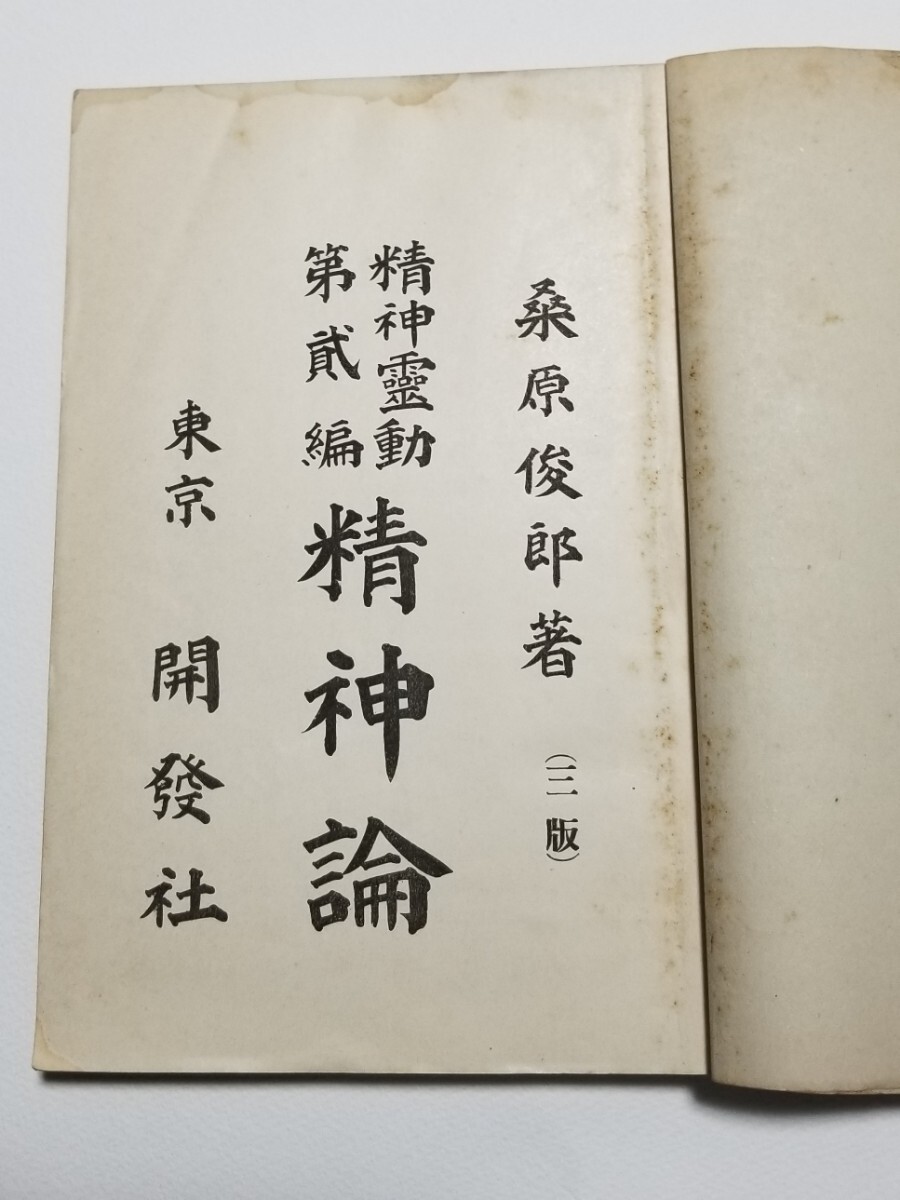 桑原俊郎著（三版）
精神靈動
第貳編
精神論
東京　開發社